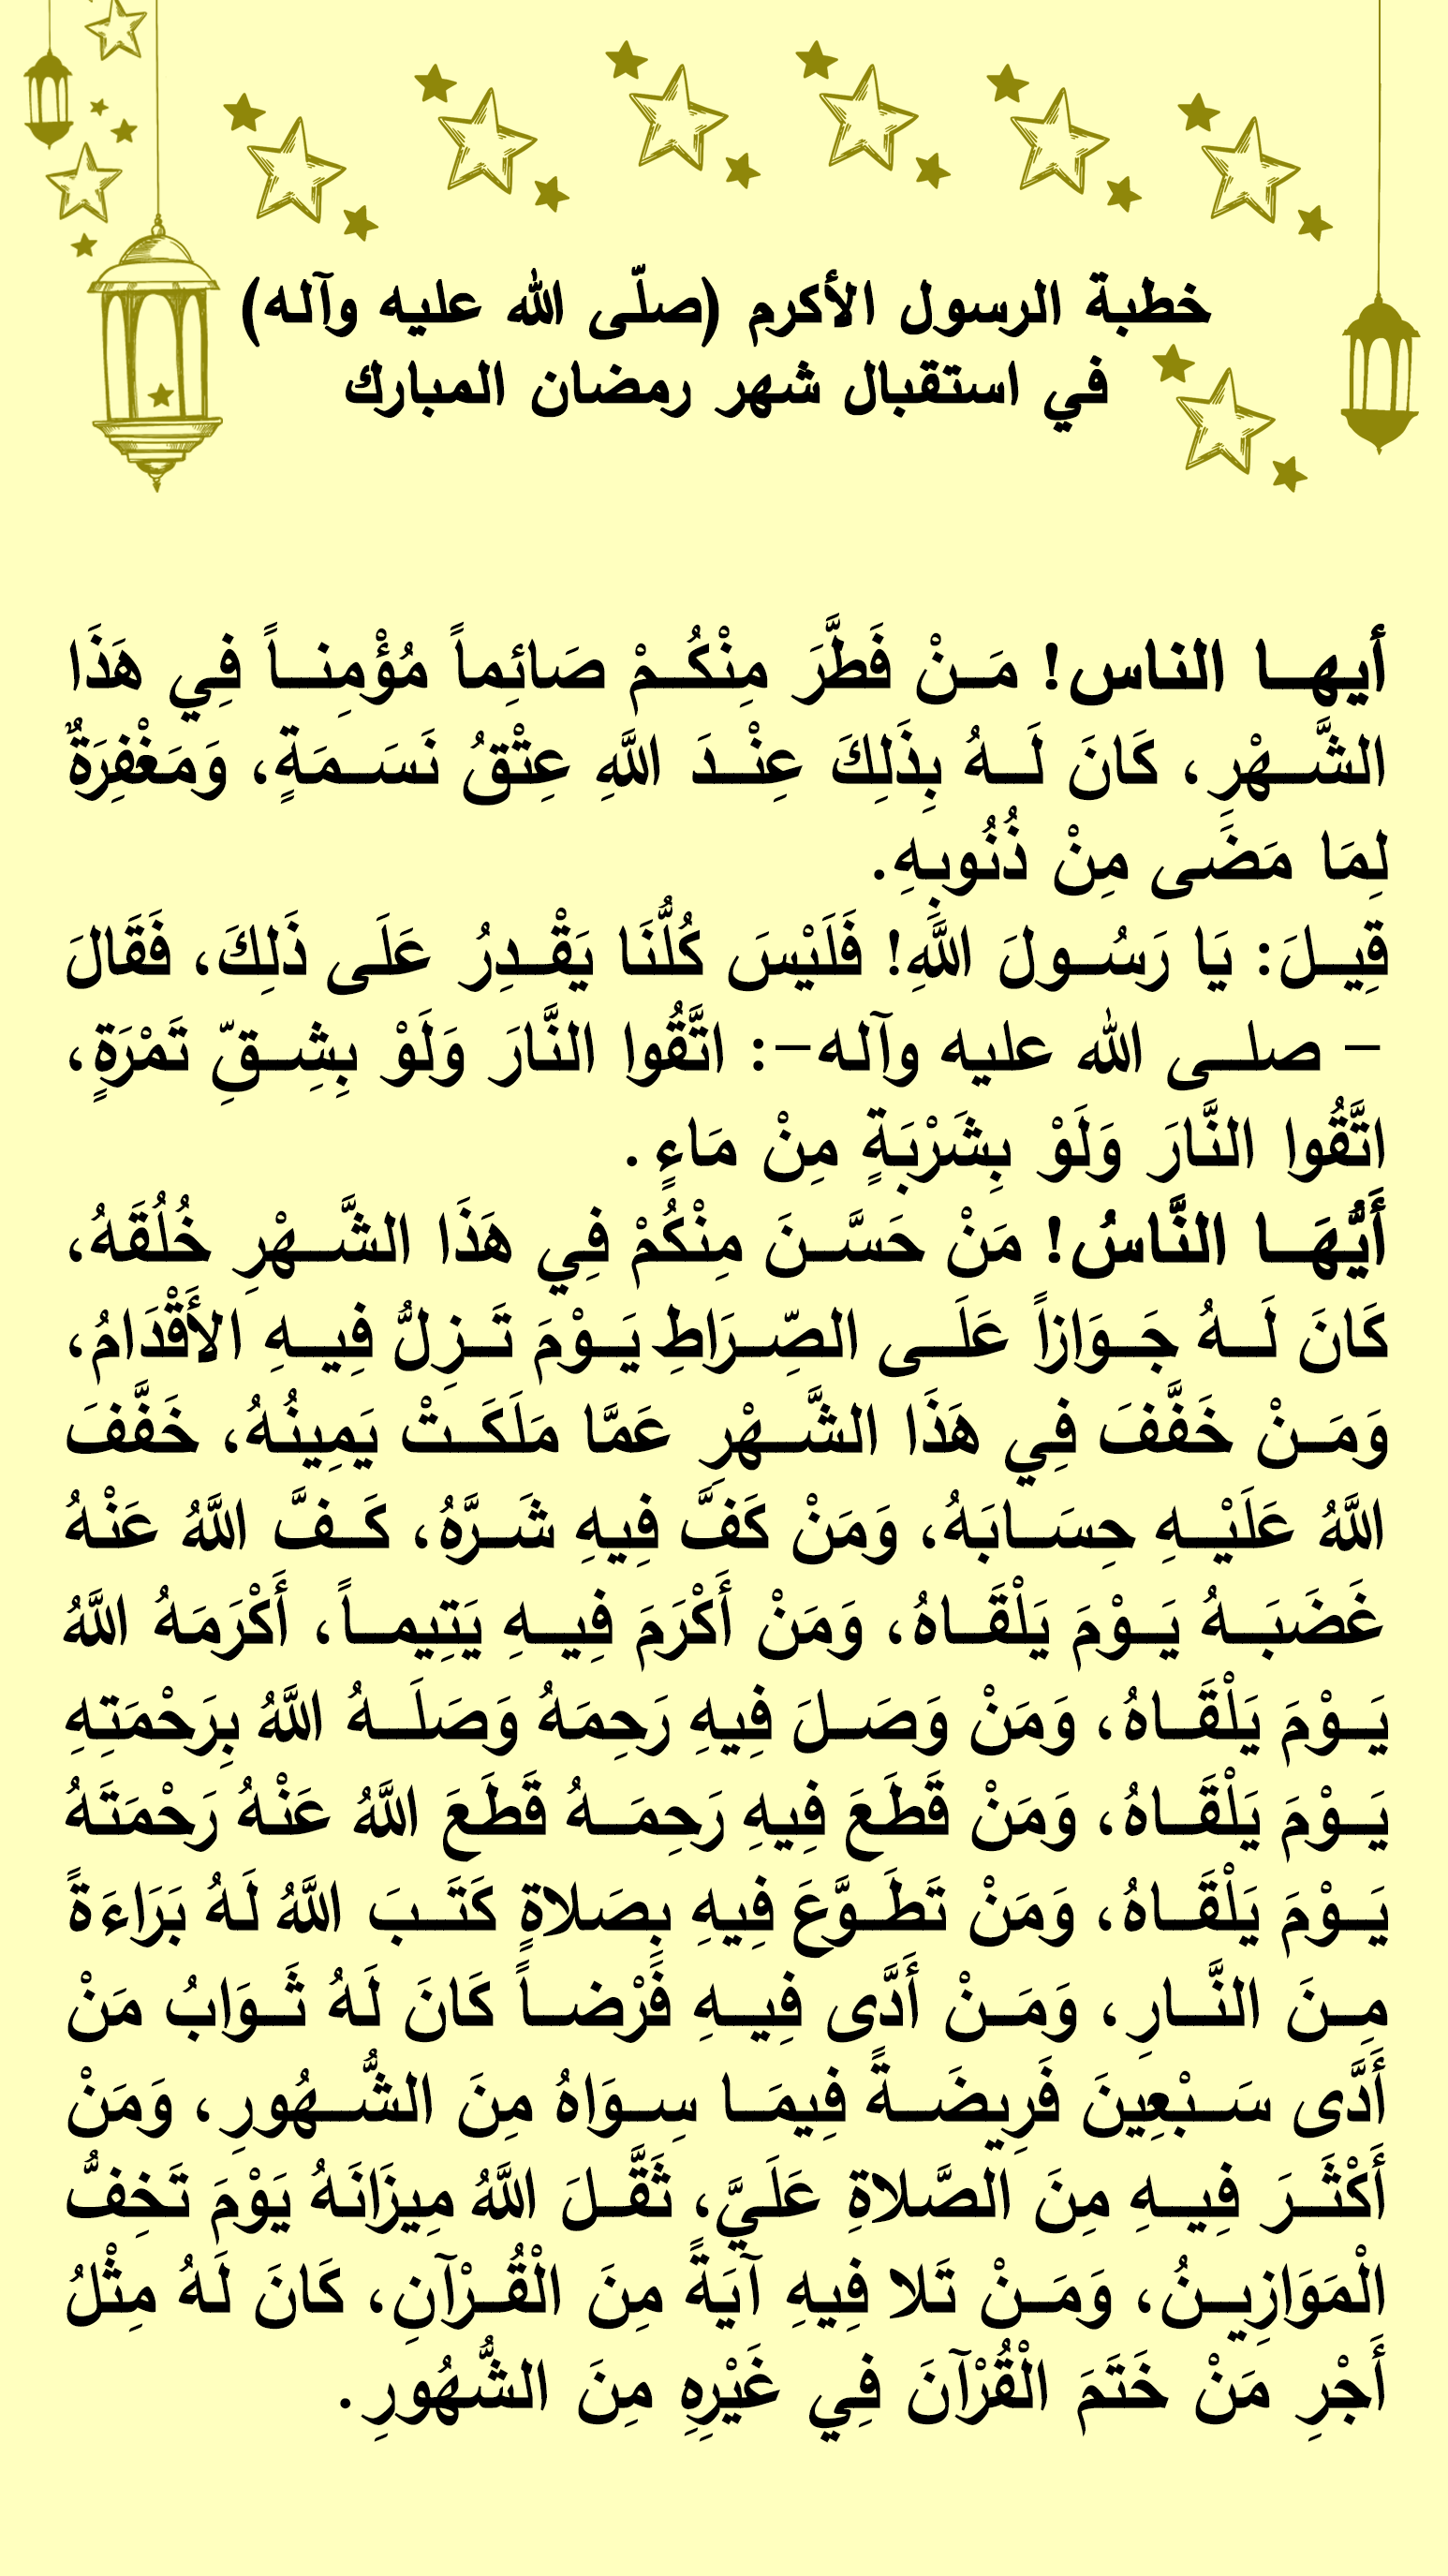 خطبة الرسول الأكرم (صلّى الله عليه وآله)
في استقبال شهر رمضان المبارك
أيها الناس! مَنْ فَطَّرَ مِنْكُمْ صَائِماً مُؤْمِناً فِي هَذَا
الشَّهْرِ، كَانَ لَهُ بِذَلِكَ عِنْدَ اللَّهِ عِتْقُ نَسَمَةٍ، وَمَغْفِرَةٌ
لِمَا مَضَى مِنْ ذُنُوبِهِ.
قِيلَ: يَا رَسُولَ اللَّهِ! فَلَيْسَ كُلُّنَا يَقْدِرُ عَلَى ذَلِكَ، فَقَالَ
- صلى الله عليه وآله-: اتَّقُوا النَّارَ وَلَوْ بِشِقِّ تَمْرَةٍ،
اتَّقُوا النَّارَ وَلَوْ بِشَرْبَةٍ مِنْ مَاءٍ.
أَيُّهَا النَّاسُ! مَنْ حَسَّنَ مِنْكُمْ فِي هَذَا الشَّهْرِ خُلُقَهُ،
كَانَ لَهُ جَوَازاً عَلَى الصِّرَاطِ يَوْمَ تَزِلُّ فِيهِ الأَقْدَامُ،
وَمَنْ خَفَّفَ فِي هَذَا الشَّهْرِ عَمَّا مَلَكَتْ يَمِينُهُ، خَفَّفَ
اللَّهُ عَلَيْهِ حِسَابَهُ، وَمَنْ كَفَّ فِيهِ شَرَّهُ، كَفَّ اللَّهُ عَنْهُ
غَضَبَهُ يَوْمَ يَلْقَاهُ، وَمَنْ أَكْرَمَ فِيهِ يَتِيماً، أَكْرَمَهُ اللَّهُ
يَوْمَ يَلْقَاهُ، وَمَنْ وَصَلَ فِيهِ رَحِمَهُ وَصَلَهُ اللَّهُ بِرَحْمَتِهِ
يَوْمَ يَلْقَاهُ، وَمَنْ قَطَعَ فِيهِ رَحِمَهُ قَطَعَ اللَّهُ عَنْهُ رَحْمَتَهُ
يَوْمَ يَلْقَاهُ، وَمَنْ تَطَوَّعَ فِيهِ بِصَلاةٍ كَتَبَ اللَّهُ لَهُ بَرَاءَةً
مِنَ النَّارِ، وَمَنْ أَدَّى فِيهِ فَرْضاً كَانَ لَهُ ثَوَابُ مَنْ
أَدَّى سَبْعِينَ فَرِيضَةً فِيمَا سِوَاهُ مِنَ الشُّهُورِ، وَمَنْ
أَكْثَرَ فِيهِ مِنَ الصَّلاةِ عَلَيَّ، ثَقَّلَ اللَّهُ مِيزَانَهُ يَوْمَ تَخِفُّ
الْمَوَازِينُ، وَمَنْ تَلا فِيهِ آيَةً مِنَ الْقُرْآنِ، كَانَ لَهُ مِثْلُ
أَجْرِ مَنْ خَتَمَ الْقُرْآنَ فِي غَيْرِهِ مِنَ الشُّهُورِ.